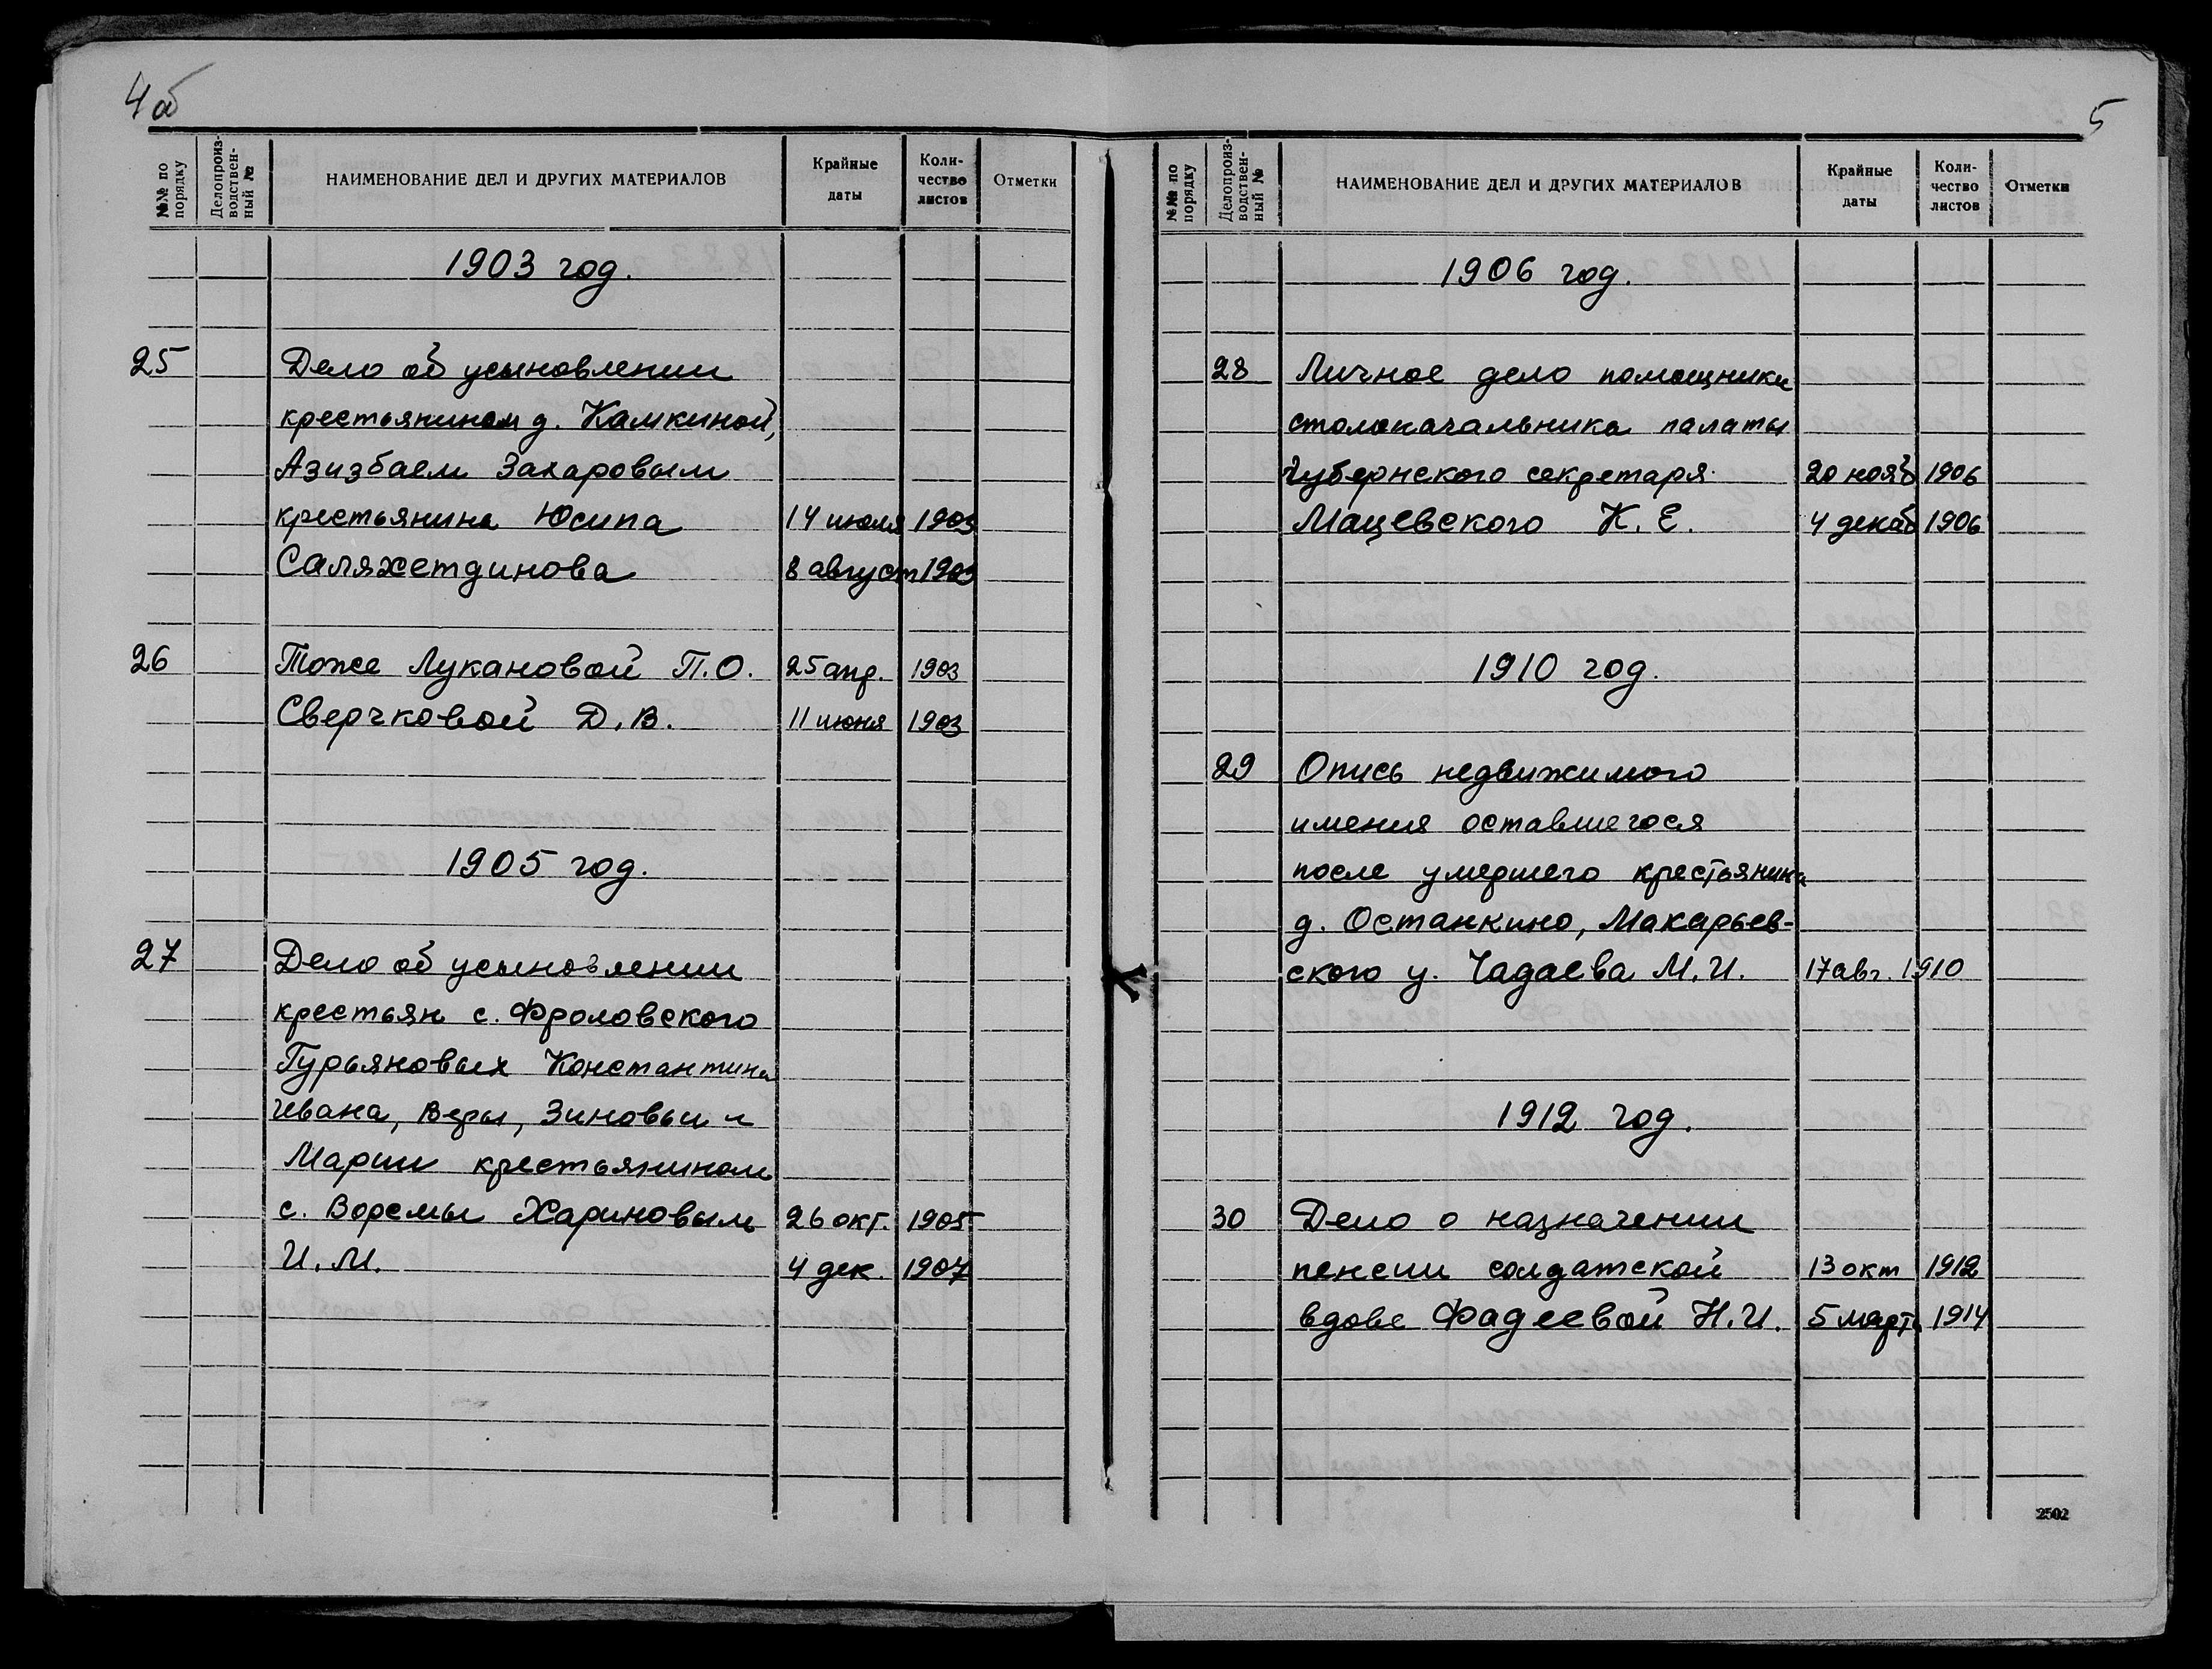 4об
№№ по порядку
Делопроиз-
водствен-
ный №
НАИМЕНОВАНИЕ ДЕЛ И ДРУГИХ МАТЕРИАЛОВ
Крайные
даты
Коли-
чество
листов
Отметки
1903 год.
25 Дело об усыновлении
крестьянином д. Камкиной,
Азизбаем Захаровым
крестьянина Юсипа 14 июля 1903
Саляхетдинова 8 август 1903
26 Тоже Лукановой П.О. 25 апр. 1903
Сверчковой Д.В. 11 июня 1903
1905 год.
27 Дело об усыновлении
крестьян с. Фроловского
Гурьяновых Константина
Ивана, Веры, Зиновьи и
Марии крестьянином
с. Воремы Хариновым 26 окт. 1905
И.М. 4 дек. 1907
5
№№ по порядку
Делопроиз-
водствен-
ный №
НАИМЕНОВАНИЕ ДЕЛ И ДРУГИХ МАТЕРИАЛОВ
Крайные
даты
Коли-
чество
листов
Отметки
1906 год.
28 Личное дело помощника
столоначальника палаты
губернского секретаря 20 нояб 1906
Мацевского К.Е. 4 декаб 1906
1910 год.
29 Опись недвижимого
имения оставшегося
после умершего крестьянина
д. Останкино, Макарьев-
ского у. Чадаева М.И. 17 авг. 1910
1912 год.
30 Дело о назначении
пенсии солдатской 13 окт 1912
вдове Фадеевой Н.И. 5 марта 1914
2502